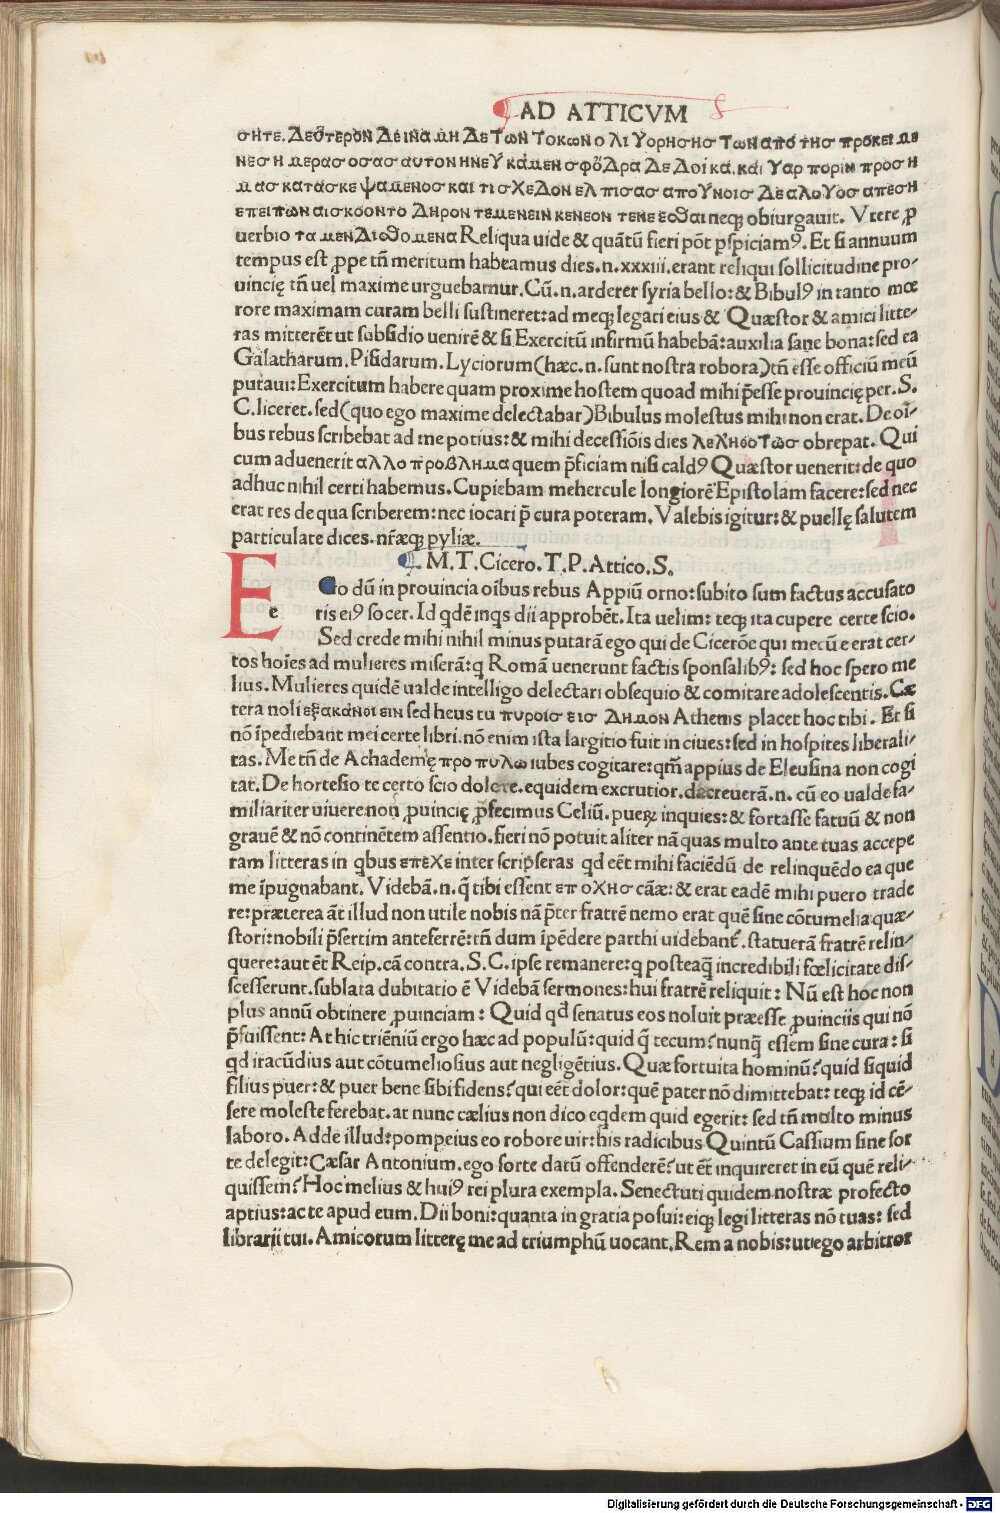 AD ATTICVM
σητε. Δεύτερον Δεινα μη Δε Των Τοκων ολιΥορησησ Των από τησ προκειμε
νεση μερασ οσασ αυτον ηνεΥκάμεν σφόδρα Δε Δοίκα. και Υαρ πορίν προσ η
μασ κατασκεψαμενοσ και τισ χεΔον ελπισασ αποΥνοισ Δε αλοΥοσ απεση
επειπων αισκοοντο Δηρον τεμενειν κενεον τενεεσθαι neqȝ obiurgauit. Vtere ꝓ
uerbio τα μεν Διθομενα Reliqua uide & quãtũ fieri põt ꝑspiciamꝰ. Et si annuum
tempus est ꝓpe tñ meritum habeamus dies. n. xxxiii. erant reliqui sollicitudine pro⸗
uincię tñ uel maxime urguebamur. Cũ. n. arderer syria bello: & Bibulꝰ in tanto mœ
rore maximam curam belli sustineret: ad meqȝ legati eius & Quæstor & amici litte⸗
ras mitterẽt ut subsidio uenirẽ & si Exercitũ infirmũ habebã: auxilia sane bona: sed ea
Galatharum. Pisidarum. Lyciorum (hæc. n. sunt nostra robora) tñ esse officiũ meũ
putaui: Exercitum habere quam proxime hostem quoad mihi p̃esse prouincię per. S.
C. liceret. sed (quo ego maxime delectabar) Bibulus molestus mihi non erat. De oĩ⸗
bus rebus scribebat ad me potius: & mihi decessiõis dies λεληθοτωσ obrepat. Qui
cum aduenerit αλλο προβλημα quem p̃ficiam nisi caldꝰ Quæstor uenerit: de quo
adhuc nihil certi habemus. Cupiebam mehercule longiorẽ Epistolam facere: sed nec
erat res de qua scriberem: nec iocari p̃ cura poteram. Valebis igitur: & puellę salutem
particulate dices. nr̃æqȝ pyliæ.
M. T. Cicero. T. P. Attico. S.
E e Go dũ in prouincia oĩbus rebus Appiũ orno: subito sum factus accusato
ris eiꝰ socer. Id qdẽ inqs dii approbẽt. Ita uelim: teqȝ ita cupere certe scio.
Sed crede mihi nihil minus putarã ego qui de Cicerõe qui mecũ e erat cer⸗
tos hoĩes ad mulieres miserã: q Romã uenerunt factis sponsalibꝰ: sed hoc spero me
lius. Mulieres quidẽ ualde intelligo delectari obsequio & comitate adolescentis. Cæ
tera noli εξακάνθι ειν sed heus tu πυροισ εισ Δημον Athenis placet hoc tibi. Et si
nõ ĩpediebant mei certe libri. nõ enim ista largitio fuit in ciues: sed in hospites liberali⸗
tas. Me tñ de Achademię προ πυλω iubes cogitare: qm̃ appius de Eleusina non cogi
tat. De hortesio te certo scio dolere. equidem excrutior. decreuerã. n. cũ eo ualde fa⸗
miliariter uiuere non ꝓuincię p̃fecimus Celiũ. pueꝝ inquies: & fortasse fatuũ & non
grauẽ & nõ continẽtem assentio. fieri nõ potuit aliter nã quas multo ante tuas accepe
ram litteras in qbus επεχε inter scripseras qd eẽt mihi faciẽdũ de relinquẽdo ea que
me ĩpugnabant. Videbã. n. q̃ tibi essent επ οχησ cãæ: & erat eadẽ mihi puero trade
re: præterea ãt illud non utile nobis nã p̃ter fratrẽ nemo erat quẽ sine cõtumelia quæ⸗
stori: nobili p̃sertim anteferrẽ: tñ dum ĩpẽdere parthi uidebant᷑. statuerã fratrẽ relin⸗
quere: aut ẽt Reip. cã contra. S. C. ipse remanere: q posteaq̃ incredibili fœlicitate dis⸗
scesserunt. sublata dubitatio ẽ Videbã sermones: hui fratrẽ reliquit: Nũ est hoc non
plus annũ obtinere ꝓuinciam: Quid qd senatus eos noluit præesse ꝓuinciis qui nõ
p̃fuissent: At hic triẽniũ ergo hæc ad populũ: quid q̃ tecum? nunq̃ essem sine cura: si
qd iracũdius aut cõtumeliosius aut negligẽtius. Quæ fortuita hominũ? quid siquid
filius puer: & puer bene sibi fidens? qui eẽt dolor: quẽ pater nõ dimittebat: teqȝ id cẽ⸗
sere moleste ferebat. at nunc cælius non dico eqdem quid egerit: sed tñ multo minus
laboro. Adde illud: pompeius eo robore uir: his radicibus Quintũ Cassium sine sor
te delegit: Cæsar Antonium. ego sorte datũ offenderẽ? ut ẽt inquireret in eũ quẽ reli⸗
quissem? Hoc melius & huiꝰ rei plura exempla. Senectuti quidem nostræ profecto
aptius: ac te apud eum. Dii boni: quanta in gratia posui: eiqȝ legi litteras nõ tuas: sed
librarii tui. Amicorum litterę me ad triumphũ uocant. Rem a nobis: ut ego arbitror
Digitalisierung gefördert durch die Deutsche Forschungsgemeinschaft - DFG